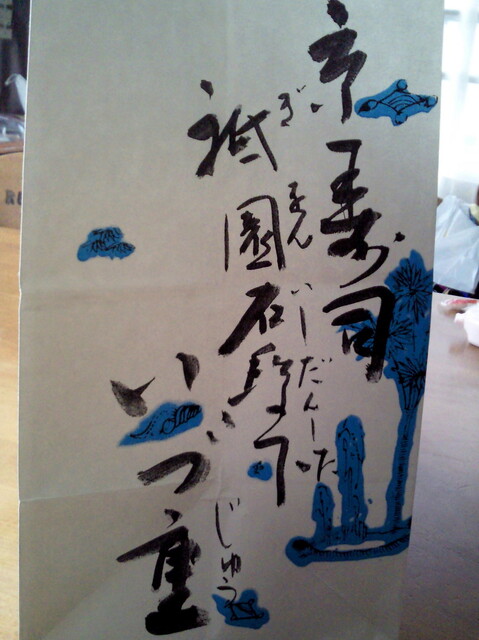 京寿司
ぎをんいしだんした
祇園石段下
いづ重
じゅう